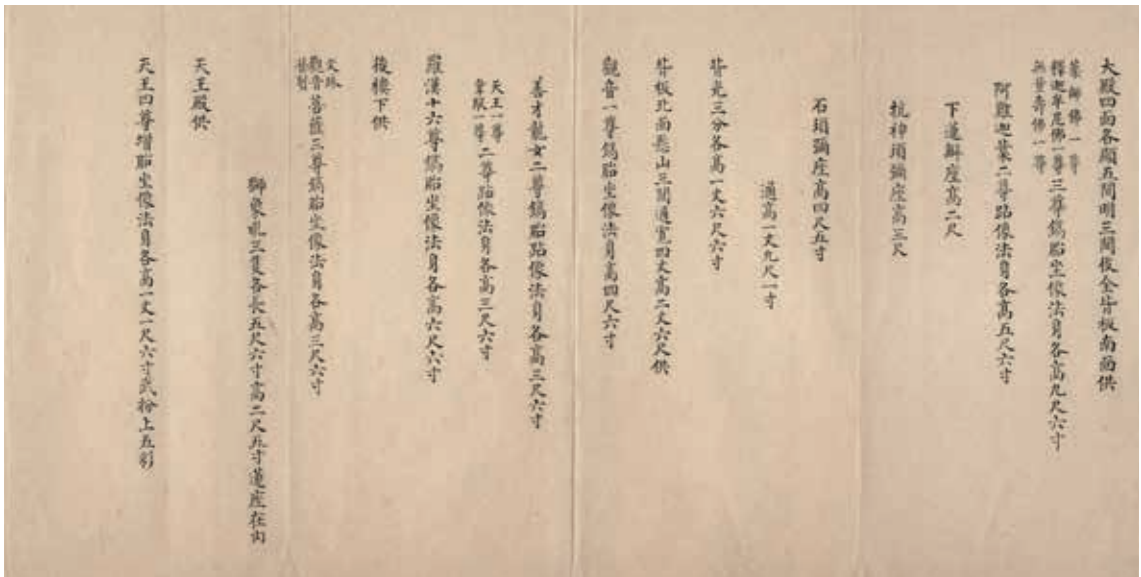 大殿四面各顯五間明三間後金背板南面供
藥師佛一尊
釋迦牟尼佛一尊三尊鎬胎坐像法身各高九尺六寸
無量壽佛一尊
阿難迦葉二尊跕像法身各高五尺六寸
下蓮瓣座高二尺
抗神須彌座高三尺
石須彌座高四尺五寸
通高一丈九尺一寸
背光三分各高一丈六尺六寸
背板北面懸山三間通寬四丈高二丈六尺供
觀音一尊鎬胎坐像法身高四尺六寸
善才龍女二尊鎬胎跕像法身各高三尺六寸
天王一尊
韋馱一尊二尊跕像法身各高三尺六寸
羅漢十六尊鎬胎坐像法身各高六尺六寸
後樓下供
文殊
觀音菩薩三尊鎬胎坐像法身各高三尺六寸
普賢
獅象犼三隻各長五尺六寸高二尺五寸蓮座在內
天王殿供
天王四尊增胎坐像法身各高一丈一尺六寸武扮上五彩